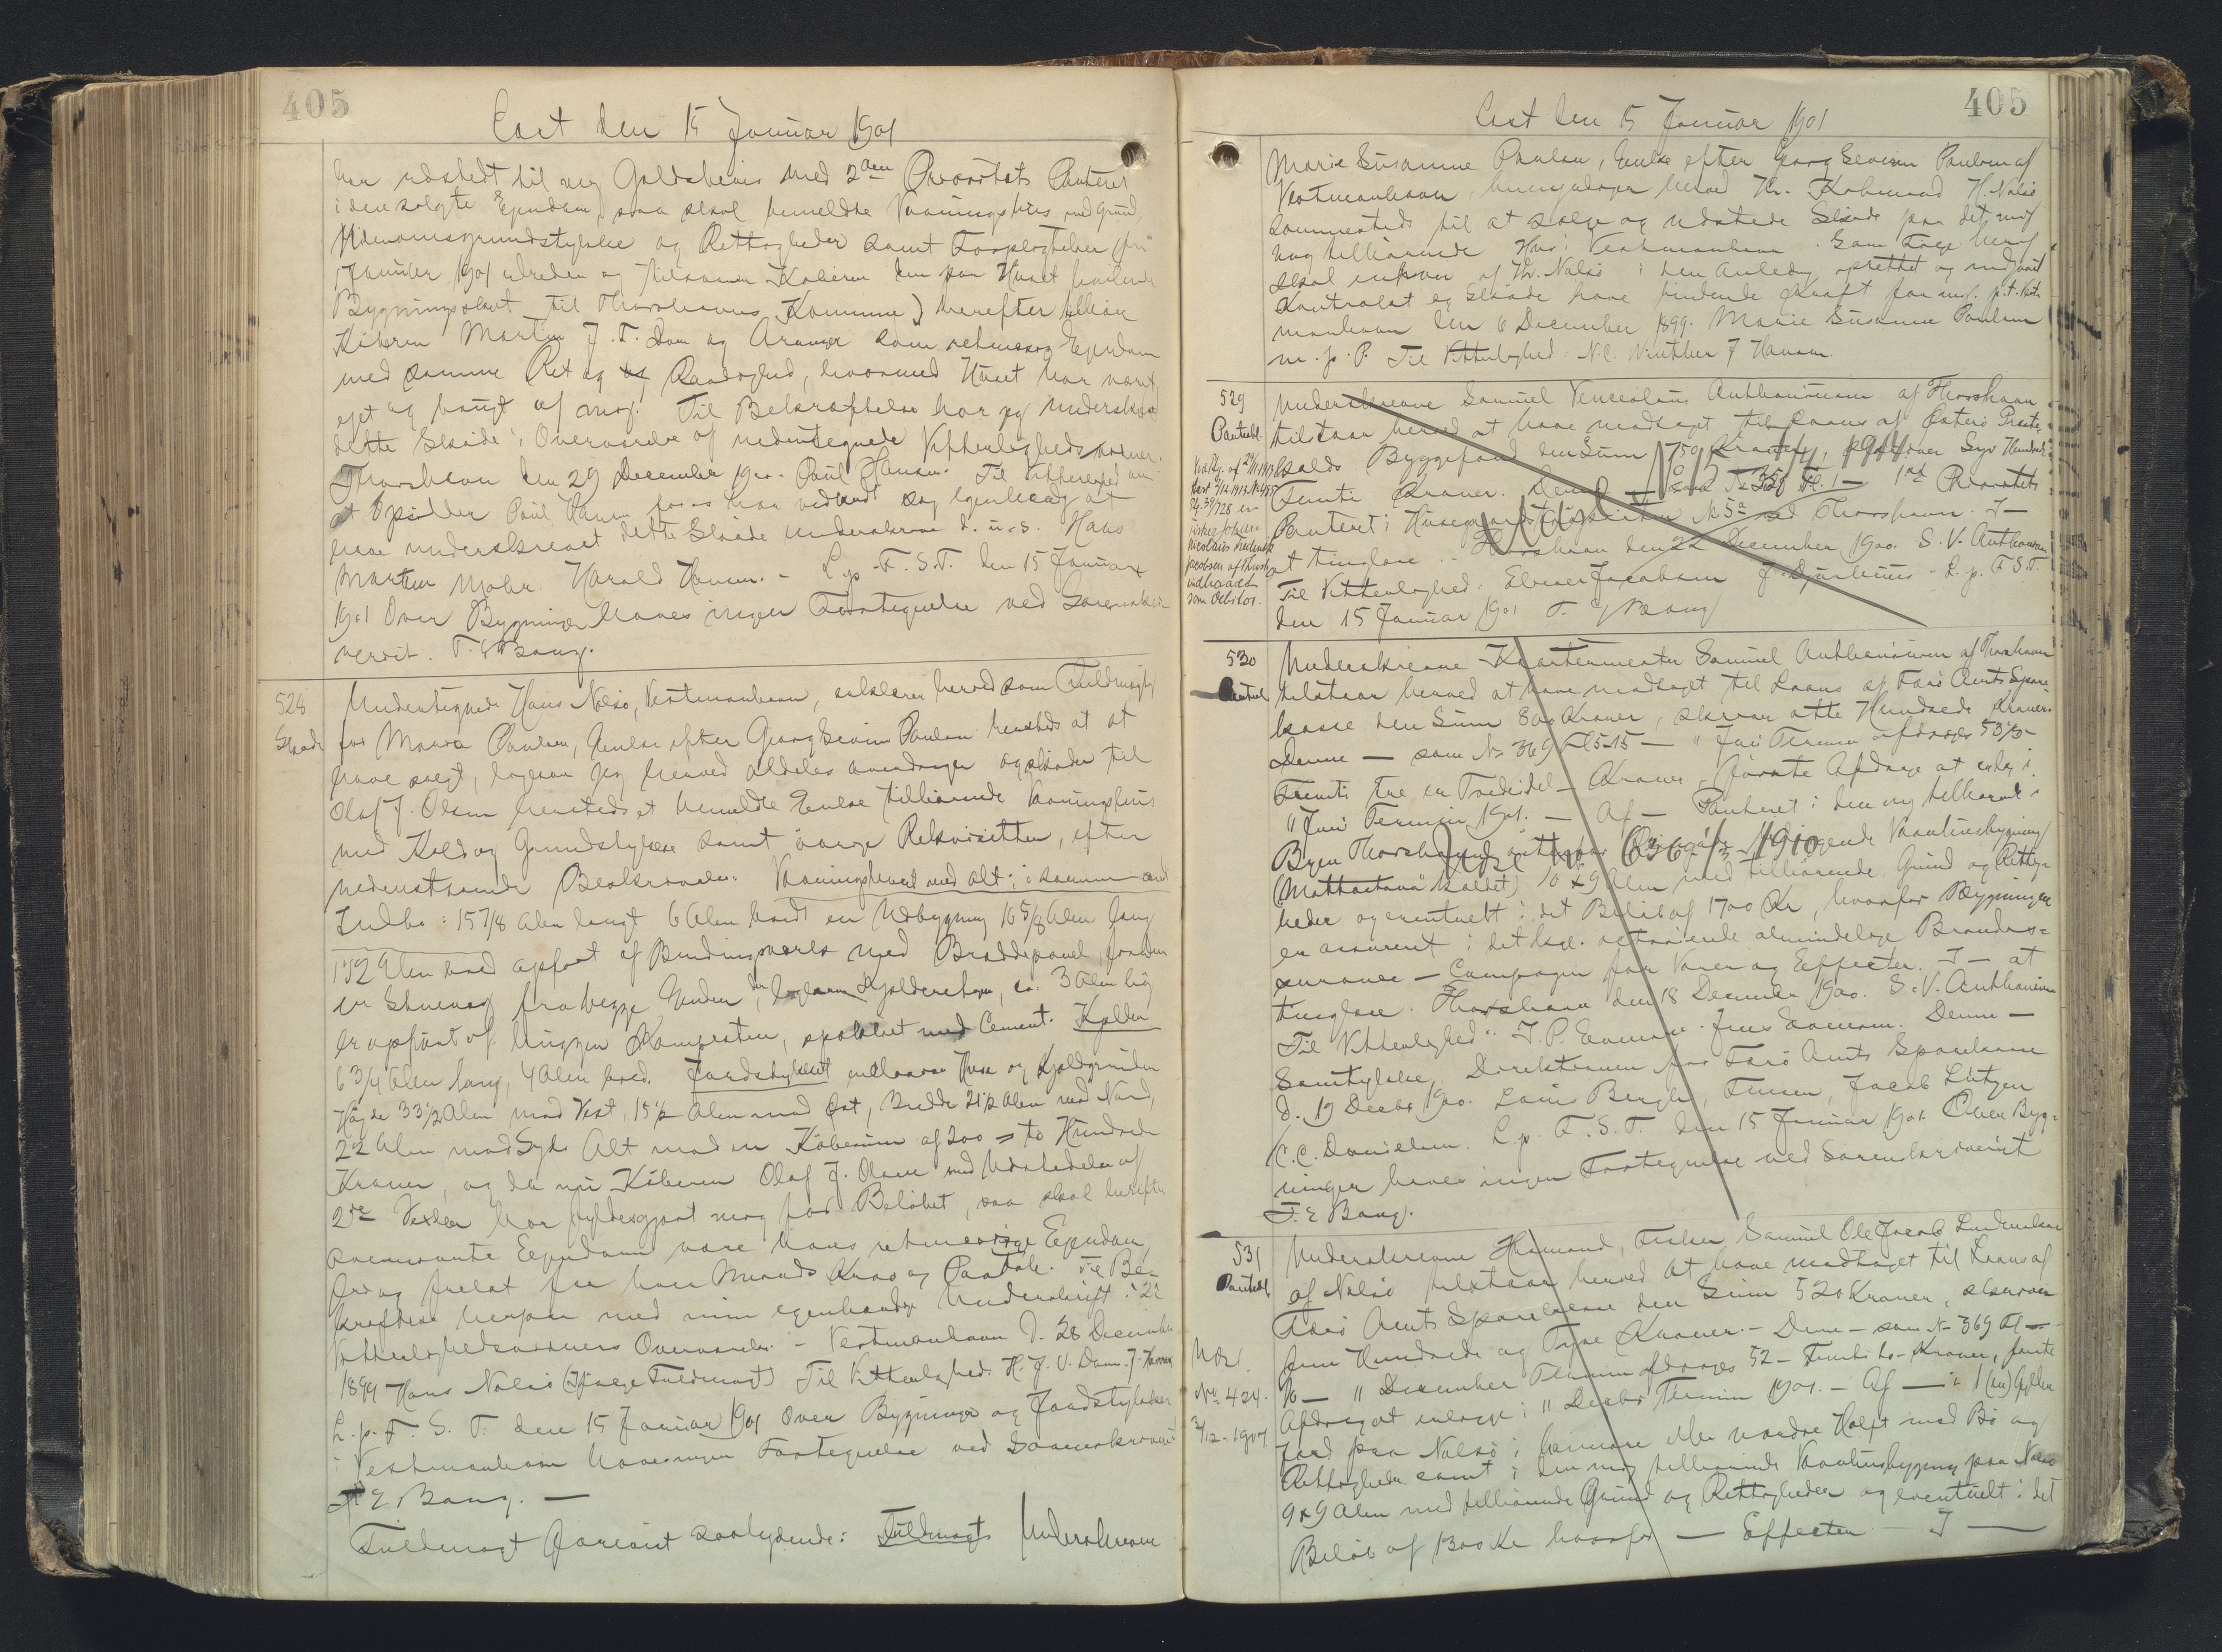 405
Læst den 15 Januar 1901
har udstedt til mig Gjældsbevis med 2den Prioritets Panteret
i den solgte Ejendom, saa skal bemeldte Vaaningshus med Grund,
Udenomsgrundstykke og Rettigheder samt Forpligtelser (fra
1 Januar 1901 udreder og tilsvarer Køberen den paa Huset hvilende
Bygningsskat til Thorshavns Kommune) herefter tilhøre
Køberen Martin J. F. Dam og Arvinger som retmæssig Ejendom
med samme Ret og Raadighed, hvormed Huset har været
ejet og brugt af mig. Til Bekræftelse har jeg underskrevet
dette Skøde i Overværelse af nedentegnede Vitterligheds vidner.
Thorshavn den 29 December 1900. Poul Hansen. Til Vitterlighed om
at Opsidder Poul Hansen for os har vedkendt sig egenhændig at
have underskrevet dette Skøde underskrive d. u. s. Hans
Martin Mohr. Harald Hansen. - L. p. F. S. T. den 15 Januar
1901 Over Bygninger haves ingen Fortegnelse ved Sorenskri-
veriet. F. E. Bang.
528
Skøde
Undertegnede Hans Nolsø, Vestmanhavn, erklærer herved som Fuldmægtig
for Maria Paulsen, Enke efter Georg Severin Paulsen hersteds at at
have solgt, ligesom jeg herved aldeles overdrager og skøder til
Olaf J. Olsen hersteds et bemeldte Enke tilhørende Vaaningshus
med Kold og Grundstykke samt øvrige Rekvisitter, efter
nedenstaaende Beskrivelse: Vaaningshuset med alt i samme værd
Indbo: 15 7/8 Alen langt 6 Alen bredt en Udbygning 10 5/8 Alen lang
1 1/2 Alen bred opført af Bindingsværk med Bræddepanel, foruden
en Skorsten fra begge Ender, ligesom Kjælderetagen, ca. 3 Alen høj
er opført af huggen Kampesten, spækket med Cement. Kolden
6 3/4 Alen lang, 4 Alen bred. Jordstykket indbefatter Huse og Kjoldgrunden
Højde 33 1/2 Alen mod Vest, 15 1/2 Alen mod Øst, Bredde 21 1/2 Alen mod Nord,
22 Alen mod Syd. Alt mod en Købesum af 200 = to Hundrede
Kroner, og da nu Køberen Olaf J. Olsen med Udstedelse af
2de Vexler har fyldestgjort mig for Beløbet, saa skal herefter
ovennævnte Ejendom være hans retmæssige Ejendom,
fri og frelst fra hver Mands Krav og Paatale. Til Be-
kræftelse herpaa med min egenhændige Underskrift i 2de
Vitterlighedsvidners Overværelse. - Vestmanhavn d. 28 December
1899 Hans Nolsø (Ifølge Fuldmagt) Til Vitterlighed: H. J. V. Dam. J. Hansen
L. p. F. S. T. den 15 Januar 1901 Over Bygninger og Jordstykker
i Vestmanhavn haves ingen Fortegnelse ved Sorenskriveriet
F. E. Bang. —
Fuldmagt foreviist saalydende: Fuldmagt Underskrevne
405
Læst den 15 Januar 1901
Marie Susanne Paulsen, Enke efter Georg Severin Paulsen af
Vestmanhavn, bemyndiger herved Hr. Købmand H. Nolsø
sammesteds til at sælge og udstede Skøde paa det mig
nu tilhørende Hus i Vestmanhavn. Som Følge heraf
skal enhver af Hr. Nolsø i den Anledning oprettet og indgaaet
Kontrakt og Skøde have bindende Kraft for mig. p. t. Vest-
manhavn den 6 December 1899. Marie Susanne Paulsen
m. p. P. Til Vitterlighed: N. C. Winther J Hansen.
529
Pantobl.
Underskrevne Samuel Venceslaus Anthoniussen af Thorshavn
tilstaar herved at have modtaget til Laans af Østerø Præste-
kalds Byggefond den Sum 750 Kroner, skriver Syv Hundrede
Femti Kroner. Denne — som № 358 Fl. 1 — 1ste Prioritets
Panteret i Husegrundstykket Matr. № 5a ved Thorshavn. I —
at tinglæse .. Thorshavn den 22 December 1900. S. V. Anthoniussen
Til Vitterlighed: Elieser Jacobsen J. Djurhuus. L. p. F. S. T.
den 15 Januar 1901 F. E. Bang
Udsl. № 512 4/4 1914
Nicolaus Frederik
Jacobsen af Thorshavn
indtraadt
som Debitor.
530
Pantobl
Underskrevne Kvartermester Samuel Anthoniussen af Thorshavn
tilstaar herved at have modtaget til Laans af Færø Amts Spare-
kasse den Sum 800 Kroner, skriver otte Hundrede Kroner.
Denne — som № 369 Fl 5-15 — 11 Juni Termin afdrages 53 1/3 -
Femti tre en Trediedel - Kroner, første Afdrag at erlægge i
11 Juni Termin 1901. — Af — Panteret i den mig tilhørende i
Byen Thorshavn beliggende Vaaningsbygning
("Mattastova" kaldet) 10 x 9 Alen med tilhørende Grund og Rettig-
heder og eventuelt i det Beløb af 1700 Kr, hvorfor Bygningen
er assureret i det kgl. octroierede almindelige Brandas=
surance - Compagni for Varer og Effecter. I — at
tinglæse. Thorshavn den 18 December 1900. S. V. Anthoniussen
Til Vitterlighed: J. P. Evensen. Jens Evensen. Denne —
Samtykke. Direktionen for Færø Amts Sparekasse
d. 19 Decbr 1900. Louis Bergh, Fmsen, Jacob Lützen
C. C. Danielsen. L. p. F. S. T. den 15 Januar 1901. Over Byg-
ninger haves ingen Fortegnelse ved Sorenskriveriet
F. E. Bang.
Udsl. № 636 1/3 1910
531
Pantobl
Underskrevne Husmand, Fisker Samuel Ole Jacob Lindenskov
af Nolsø tilstaar herved at have modtaget til Laans af
Færø Amts Sparekasse den Sum 520 Kroner, skriver
fem Hundrede og Tyve Kroner. - Denne — som № 369 Fl —
10 — 11 December Termin afdrages 52 - Femti to - Kroner, første
Afdrag at erlægge i 11 Decbr Termin 1901. — Af — i 1 (en) Gylden
Jord paa Nolsø i heimare eller nordre Helft med Bø og
Rettigheder samt i den mig tilhørende Vaaningsbygning paa Nolsø
9 x 9 Alen med tilhørende Grund og Rettigheder og eventuelt i det
Beløb af 1300 Kr hvorfor — Effecter — I —
Udsl.
№ 424.
3/12 - 1907